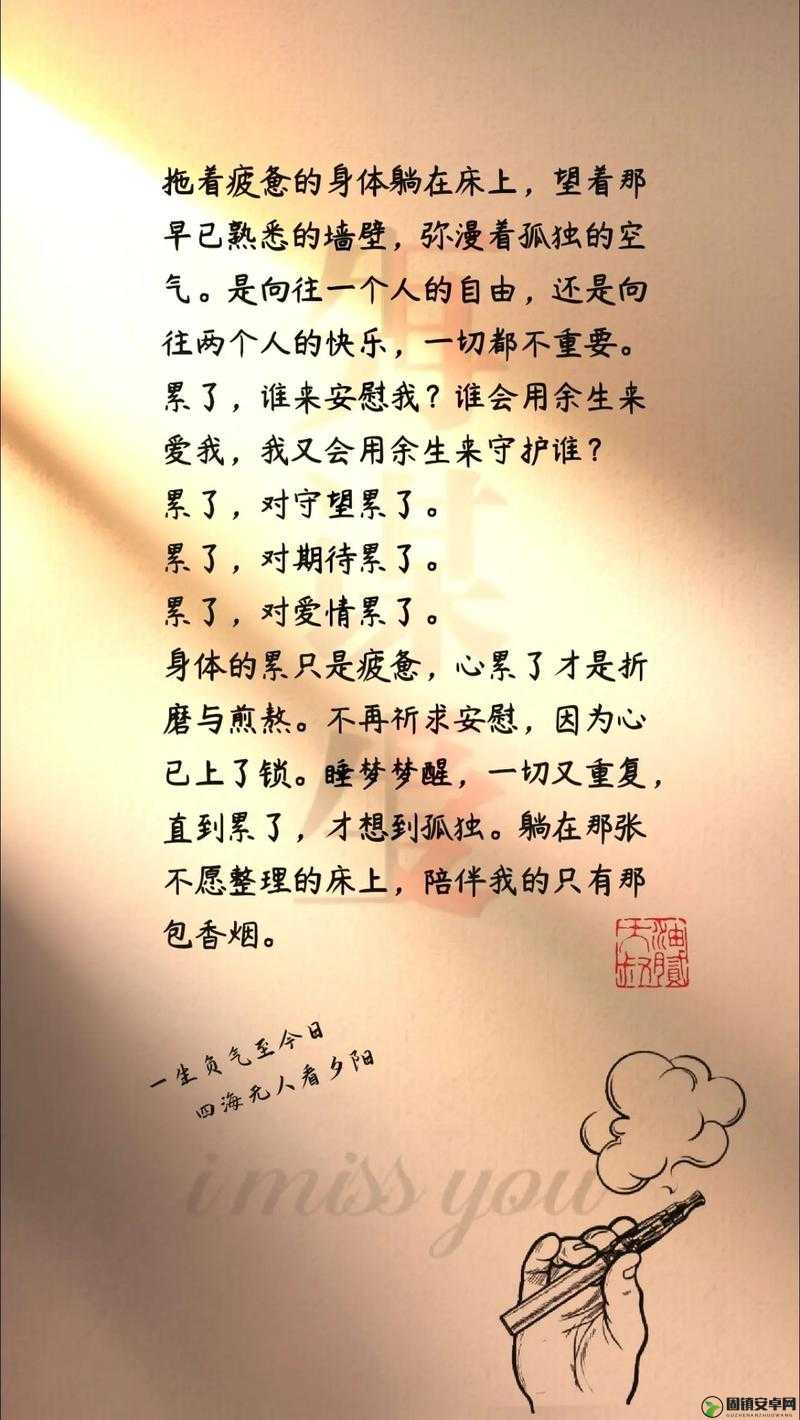 拖着疲惫的身体躺在床上，望着那
早已熟悉的墙壁，弥漫着孤独的空
气。是向往一个人的自由，还是向
往两个人的快乐，一切都不重要。
累了，谁来安慰我？谁会用余生来
爱我，我又会用余生来守护谁？
累了，对守望累了。
累了，对期待累了。
累了，对爱情累了。
身体的累只是疲惫，心累了才是折
磨与煎熬。不再祈求安慰，因为心
已上了锁。睡梦梦醒，一切又重复，
直到累了，才想到孤独。躺在那张
不愿整理的床上，陪伴我的只有那
包香烟。
一生负气至今日
四海无人看夕阳
i miss you
固镇安卓网
GUZHENANZHUOWANG